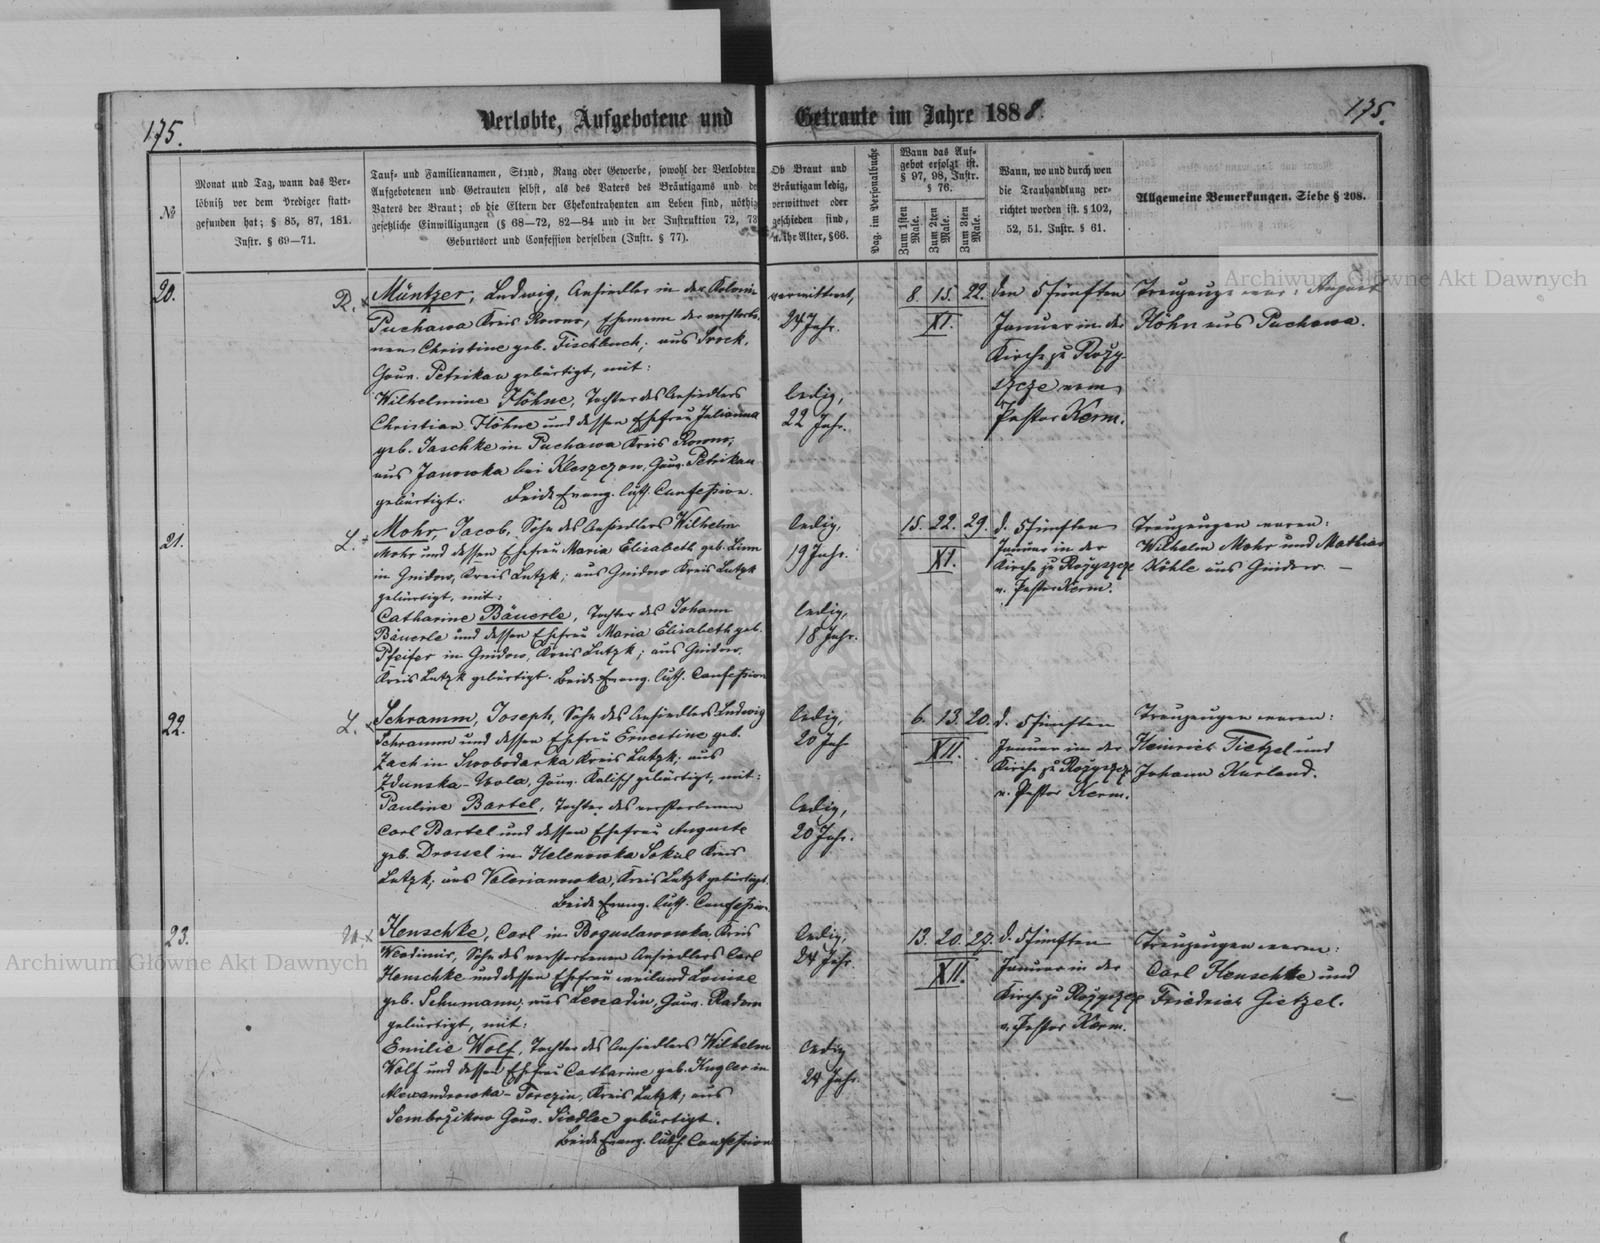 175.
Verlobte, Aufgebotene und Getraute im Jahre 1888.
175.
№
Monat und Tag, wann das Ver-
löbniß vor dem Prediger statt-
gefunden hat; § 85, 87, 181.
Instr. § 69—71.
Tauf- und Familiennamen, Stand, Rang oder Gewerbe, sowohl der Verlobten
Aufgebotenen und Getrauten selbst, als des Vaters des Bräutigams und de
Vaters der Braut; ob die Eltern der Ehekontrahenten am Leben sind, nöthig
gesetzliche Einwilligungen (§ 68—72, 82—84 und in der Instruktion 72, 73
Geburtsort und Confession derselben (Instr. § 77).
Ob Braut und
Bräutigam ledig,
verwittwet oder
geschieden sind,
u. ihr Alter, § 66.
Pag. im Personalbuche
Wann das Auf-
gebot erfolgt ist.
§ 97, 98, Instr.
§ 76.
Zum 1sten Male.
Zum 2ten Male.
Zum 3ten Male.
Wann, wo und durch wen
die Trauhandlung ver-
richtet worden ist. § 102,
52, 51. Instr. § 61.
Allgemeine Bemerkungen. Siehe § 208.
20.
R. x
Müntzer, Ludwig, Ansiedler in der Kolonie
Puchawa Kreis Rowno, Ehemann der verstorbe-
nen Christine geb. Fischbuch; aus Srock,
Gouv. Petrikau gebürtigt, mit:
Wilhelmine Höhne, Tochter des Ansiedlers
Christian Höhne und dessen Ehefrau Julianna
geb. Jaschke in Puchawa Kreis Rowno;
aus Janowka bei Kleszczow, Gouv. Petrikau
gebürtigt. Beide Evang. luth. Confession.
verwittwet,
24 Jahr.
ledig,
22 Jahr.
8. 15. 22.
XI.
den 5 fünften
Januar in der
Kirche zu Rozy-
szcze vom
Pastor Kerm.
Trauzeuge war: August
Höhn aus Puchawa.
21.
L. +
Mohr, Jacob, Sohn des Ansiedlers Wilhelm
Mohr und dessen Ehefrau Maria Elisabeth geb. Linn
in Gnidow, Kreis Lutzk; aus Gnidow Kreis Lutzk
gebürtigt, mit:
Catharine Bäuerle, Tochter des Johann
Bäuerle und dessen Ehefrau Maria Elisabeth geb.
Pfeifer in Gnidow, Kreis Lutzk; aus Gnidow,
Kreis Lutzk gebürtigt. Beide Evang. luth. Confession
ledig,
19 Jahr.
ledig,
18 Jahr.
15. 22. 29.
XI.
d. 5 fünften
Januar in der
Kirche zu Rozyszcze
v. Pastor Kerm.
Trauzeugen waren:
Wilhelm Mohr und Mathias
Köhle aus Gnidow. —
22.
L. x
Schramm, Joseph, Sohn des Ansiedlers Ludwig
Schramm und dessen Ehefrau Ernestine geb.
Zach in Swobodarka Kreis Lutzk; aus
Zdunska-Wola, Gouv. Kalisch gebürtigt, mit:
Pauline Bartel, Tochter des verstorbenen
Carl Bartel und dessen Ehefrau Auguste
geb. Drossel in Helenowka Sokul Kreis
Lutzk; aus Valerianowka, Kreis Lutzk gebürtigt.
Beide Evang. luth. Confession.
ledig,
20 Jahr
ledig,
20 Jahr.
6. 13. 20.
XII.
d. 5 fünften
Januar in der
Kirche zu Rozyszcze
v. Pastor Kerm.
Trauzeugen waren:
Heinrich Tietzel und
Johann Kurland.
23.
W. x
Henschke, Carl in Boguslawowka, Kreis
Wladimir, Sohn des verstorbenen Ansiedlers Carl
Henschke und dessen Ehefrau weiland Louise
geb. Schumann; aus Leocadin, Gouv. Radom
gebürtigt, mit:
Emilie Wolf, Tochter des Ansiedlers Wilhelm
Wolf und dessen Ehefrau Catharine geb. Kugler in
Alexandrowka-Torczin, Kreis Lutzk; aus
Gouv. Siedlec gebürtigt.
Beide Evang. luth. Confession
ledig,
24 Jahr
ledig
24 Jahr
13. 20. 27.
XII.
d. 5 fünften
Januar in der
Kirche zu Rozyszcze
v. Pastor Kerm.
Trauzeugen waren:
Carl Henschke und
Friedrich Gietzel.
Archiwum Główne Akt Dawnych
Archiwum Główne Akt Dawnych